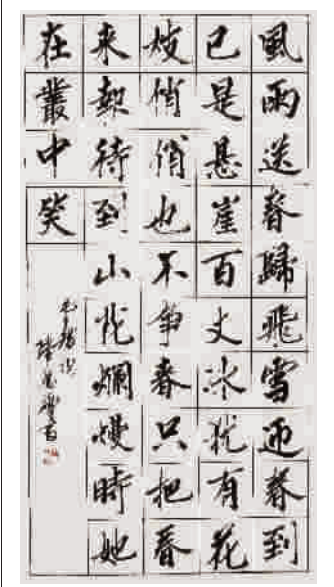 風雨送春歸飛雪迎春到
已是悬崖百丈冰犹有花
枝俏俏也不争春只把春
来報待到山花爛熳時她
在叢中笑